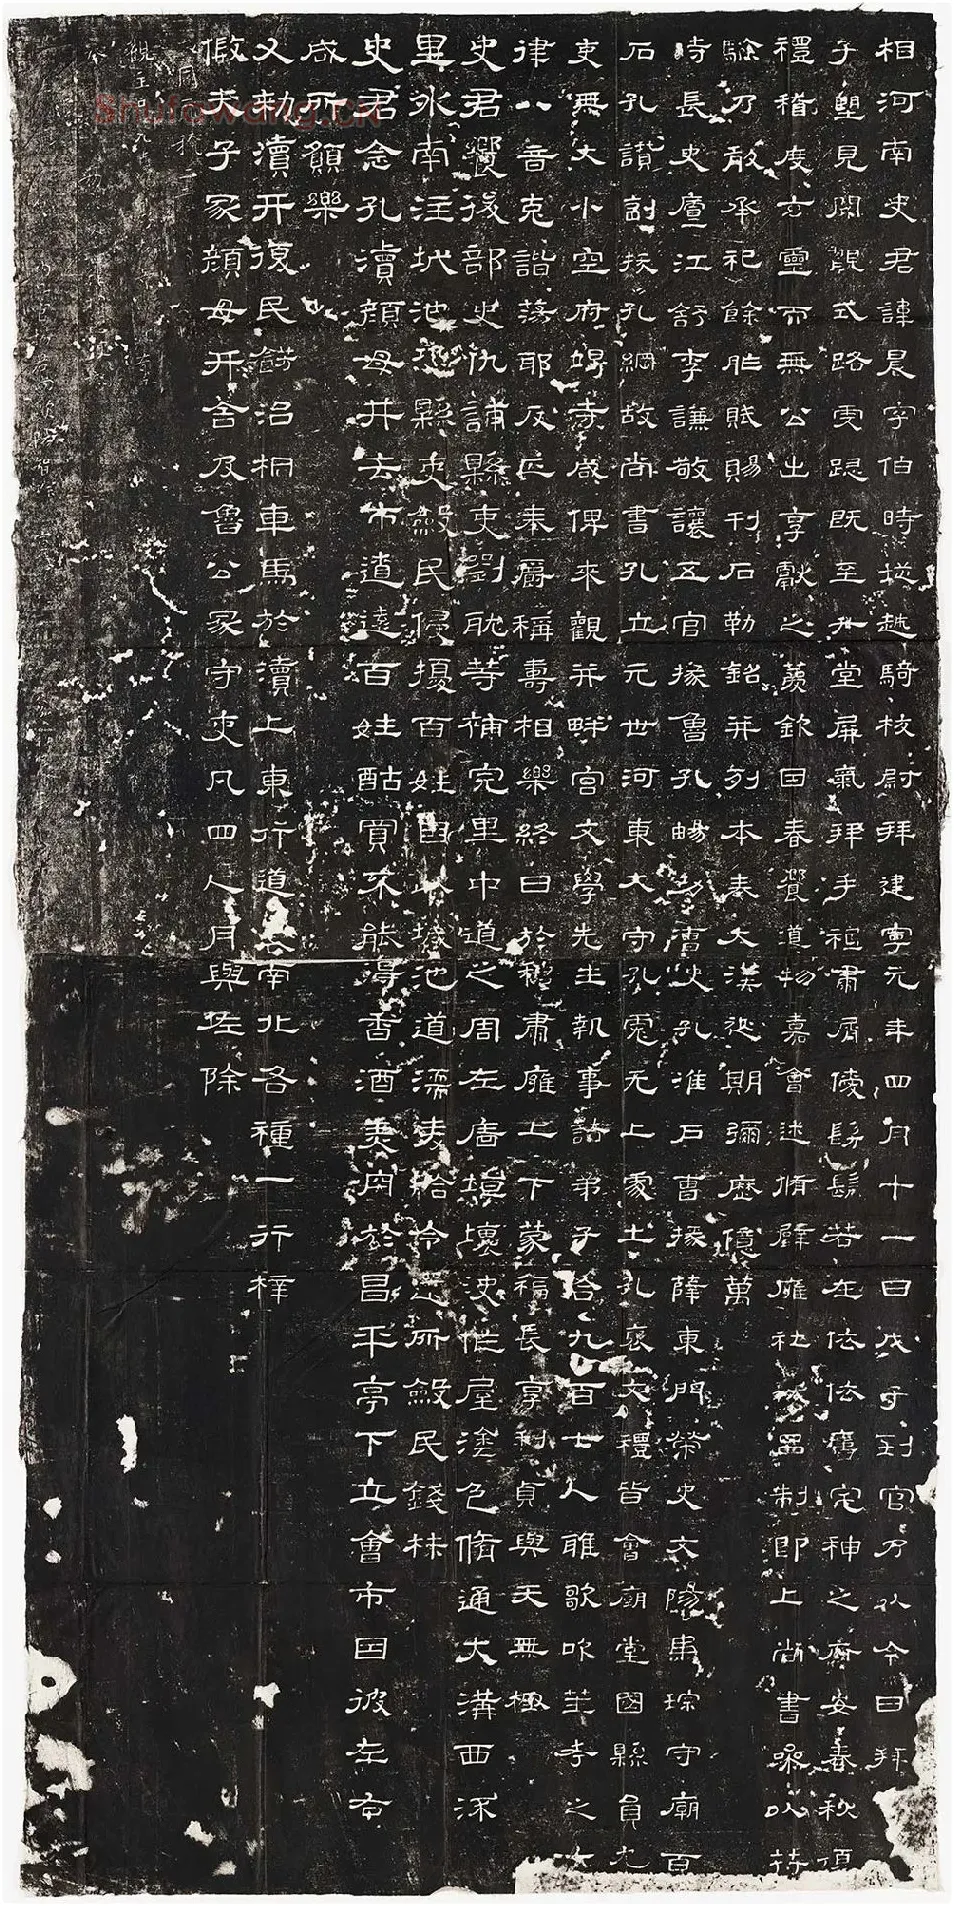 相河南史君諱晨字伯時從越騎校尉拜建寧元年四月十一日戊子到官乃以令日拜
子望見闕觀式路虔跽既至升堂屏氣拜手祗肅屑僾髣髴若在依依舊宅神之所安春秋復
禮稽度玄靈而無公出享獻之薦欽因春饗導物嘉會述脩辟廱社稷品制即上尚書參以符
驗乃敢承祀餘胙賦賜刊石勒銘并列本奏大漢延期彌歷億萬
時長史廬江舒李謙敬讓五官掾魯孔暢功曹史孔淮戶曹掾薛東門榮史文陽馬琮守廟百
石孔讚副掾孔綱故尚書孔立元世河東大守孔彪元上處士孔褒文禮皆會廟堂國縣員冗
吏無大小空府竭寺咸俾來觀并畔宮文學先生執事諸弟子合九百七人雅歌吹笙考之六
律八音克諧蕩邪反正奉爵稱壽相樂終日於穆肅雍上下蒙福長享利貞與天無極
史君饗後部史仇誧縣吏劉耽等補完里中道之周左廧垣壞決作屋塗色脩通大溝西流
里外南注城池恐縣吏斂民侵擾百姓自以城池道濡麥給令還所斂民錢材
史君念孔瀆顏母井去市遼遠百姓酤買不能得香酒美肉於昌平亭下立會市因彼左右
咸所願樂
又敕瀆井復民餝治桐車馬於瀆上東行道表南北各種一行梓
假夫子冢顏母井舍及魯公冢守吏凡四人月與佐除
Shufawang.CN